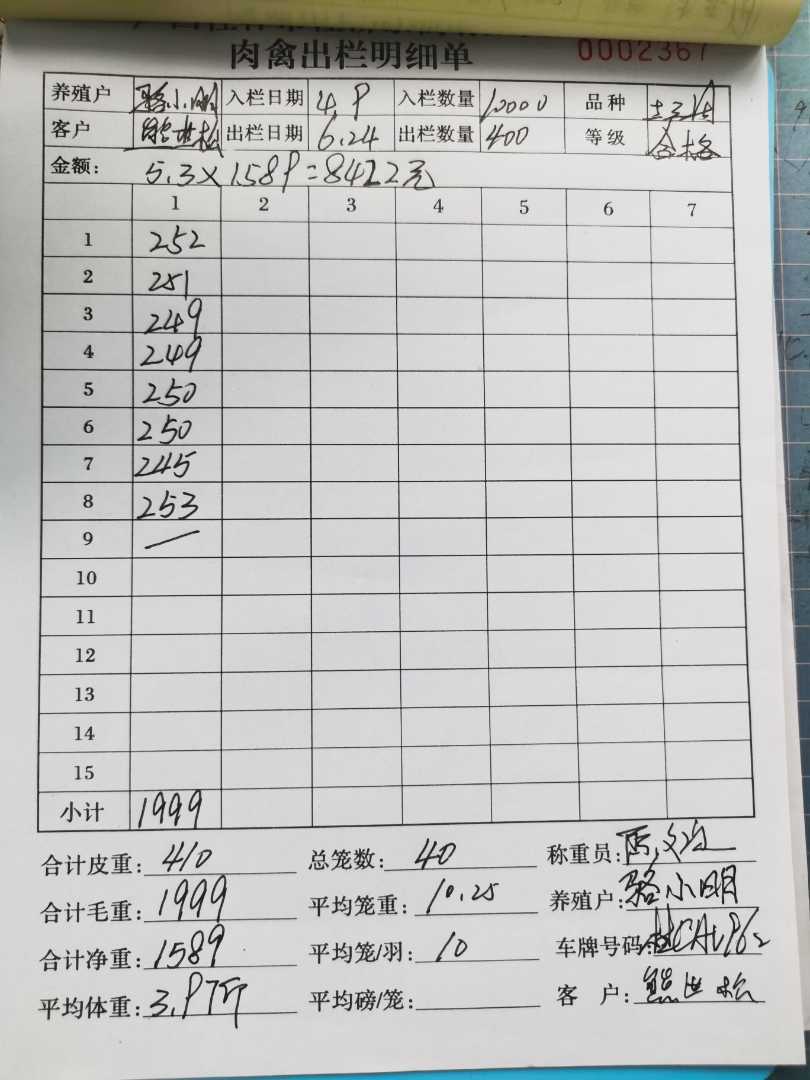 肉禽出栏明细单 0002367
养殖户 骆小明 入栏日期 4.9 入栏数量 10000 品种
客户 熊世松 出栏日期 6.24 出栏数量 400 等级 合格
金额: 5.3×1589=8422元
1 2 3 4 5 6 7
1 252
2 251
3 249
4 249
5 250
6 250
7 245
8 253
9 —
10
11
12
13
14
15
小计 1999
合计皮重: 410 总笼数: 40 称重员:
合计毛重: 1999 平均笼重: 10.25 养殖户: 骆小明
合计净重: 1589 平均笼/羽: 10 车牌号码:
平均体重: 3.9斤 平均磅/笼: 客 户: 熊世松